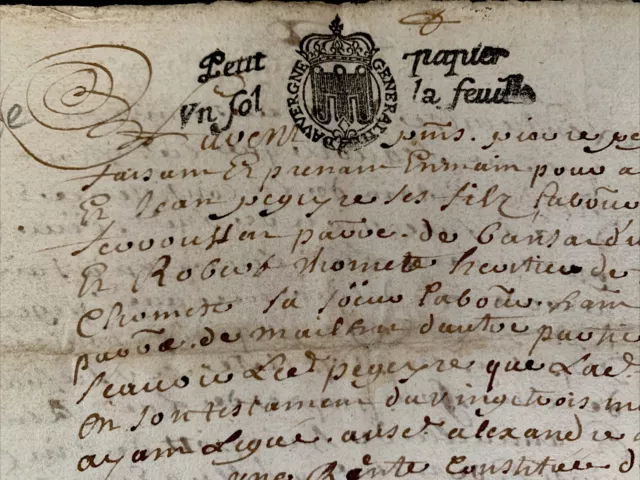 Petit papier
Vn sol la feuille
GENERALITE D'AUVERGNE
avent pnts. pierre pe
faisant Et prenant Enmain pour a
Et Jean pegeyre ses filz labour
parr. de bansac d'u
Et Robert Chomete heritier de
Chomete sa sœur labour.
parr. de mailhac d'autre partie
scauoir Led. pegeyre que Lad.
En son testament du vingt trois m
ayant Legué ausd. alexandre
une Rente Constituée d